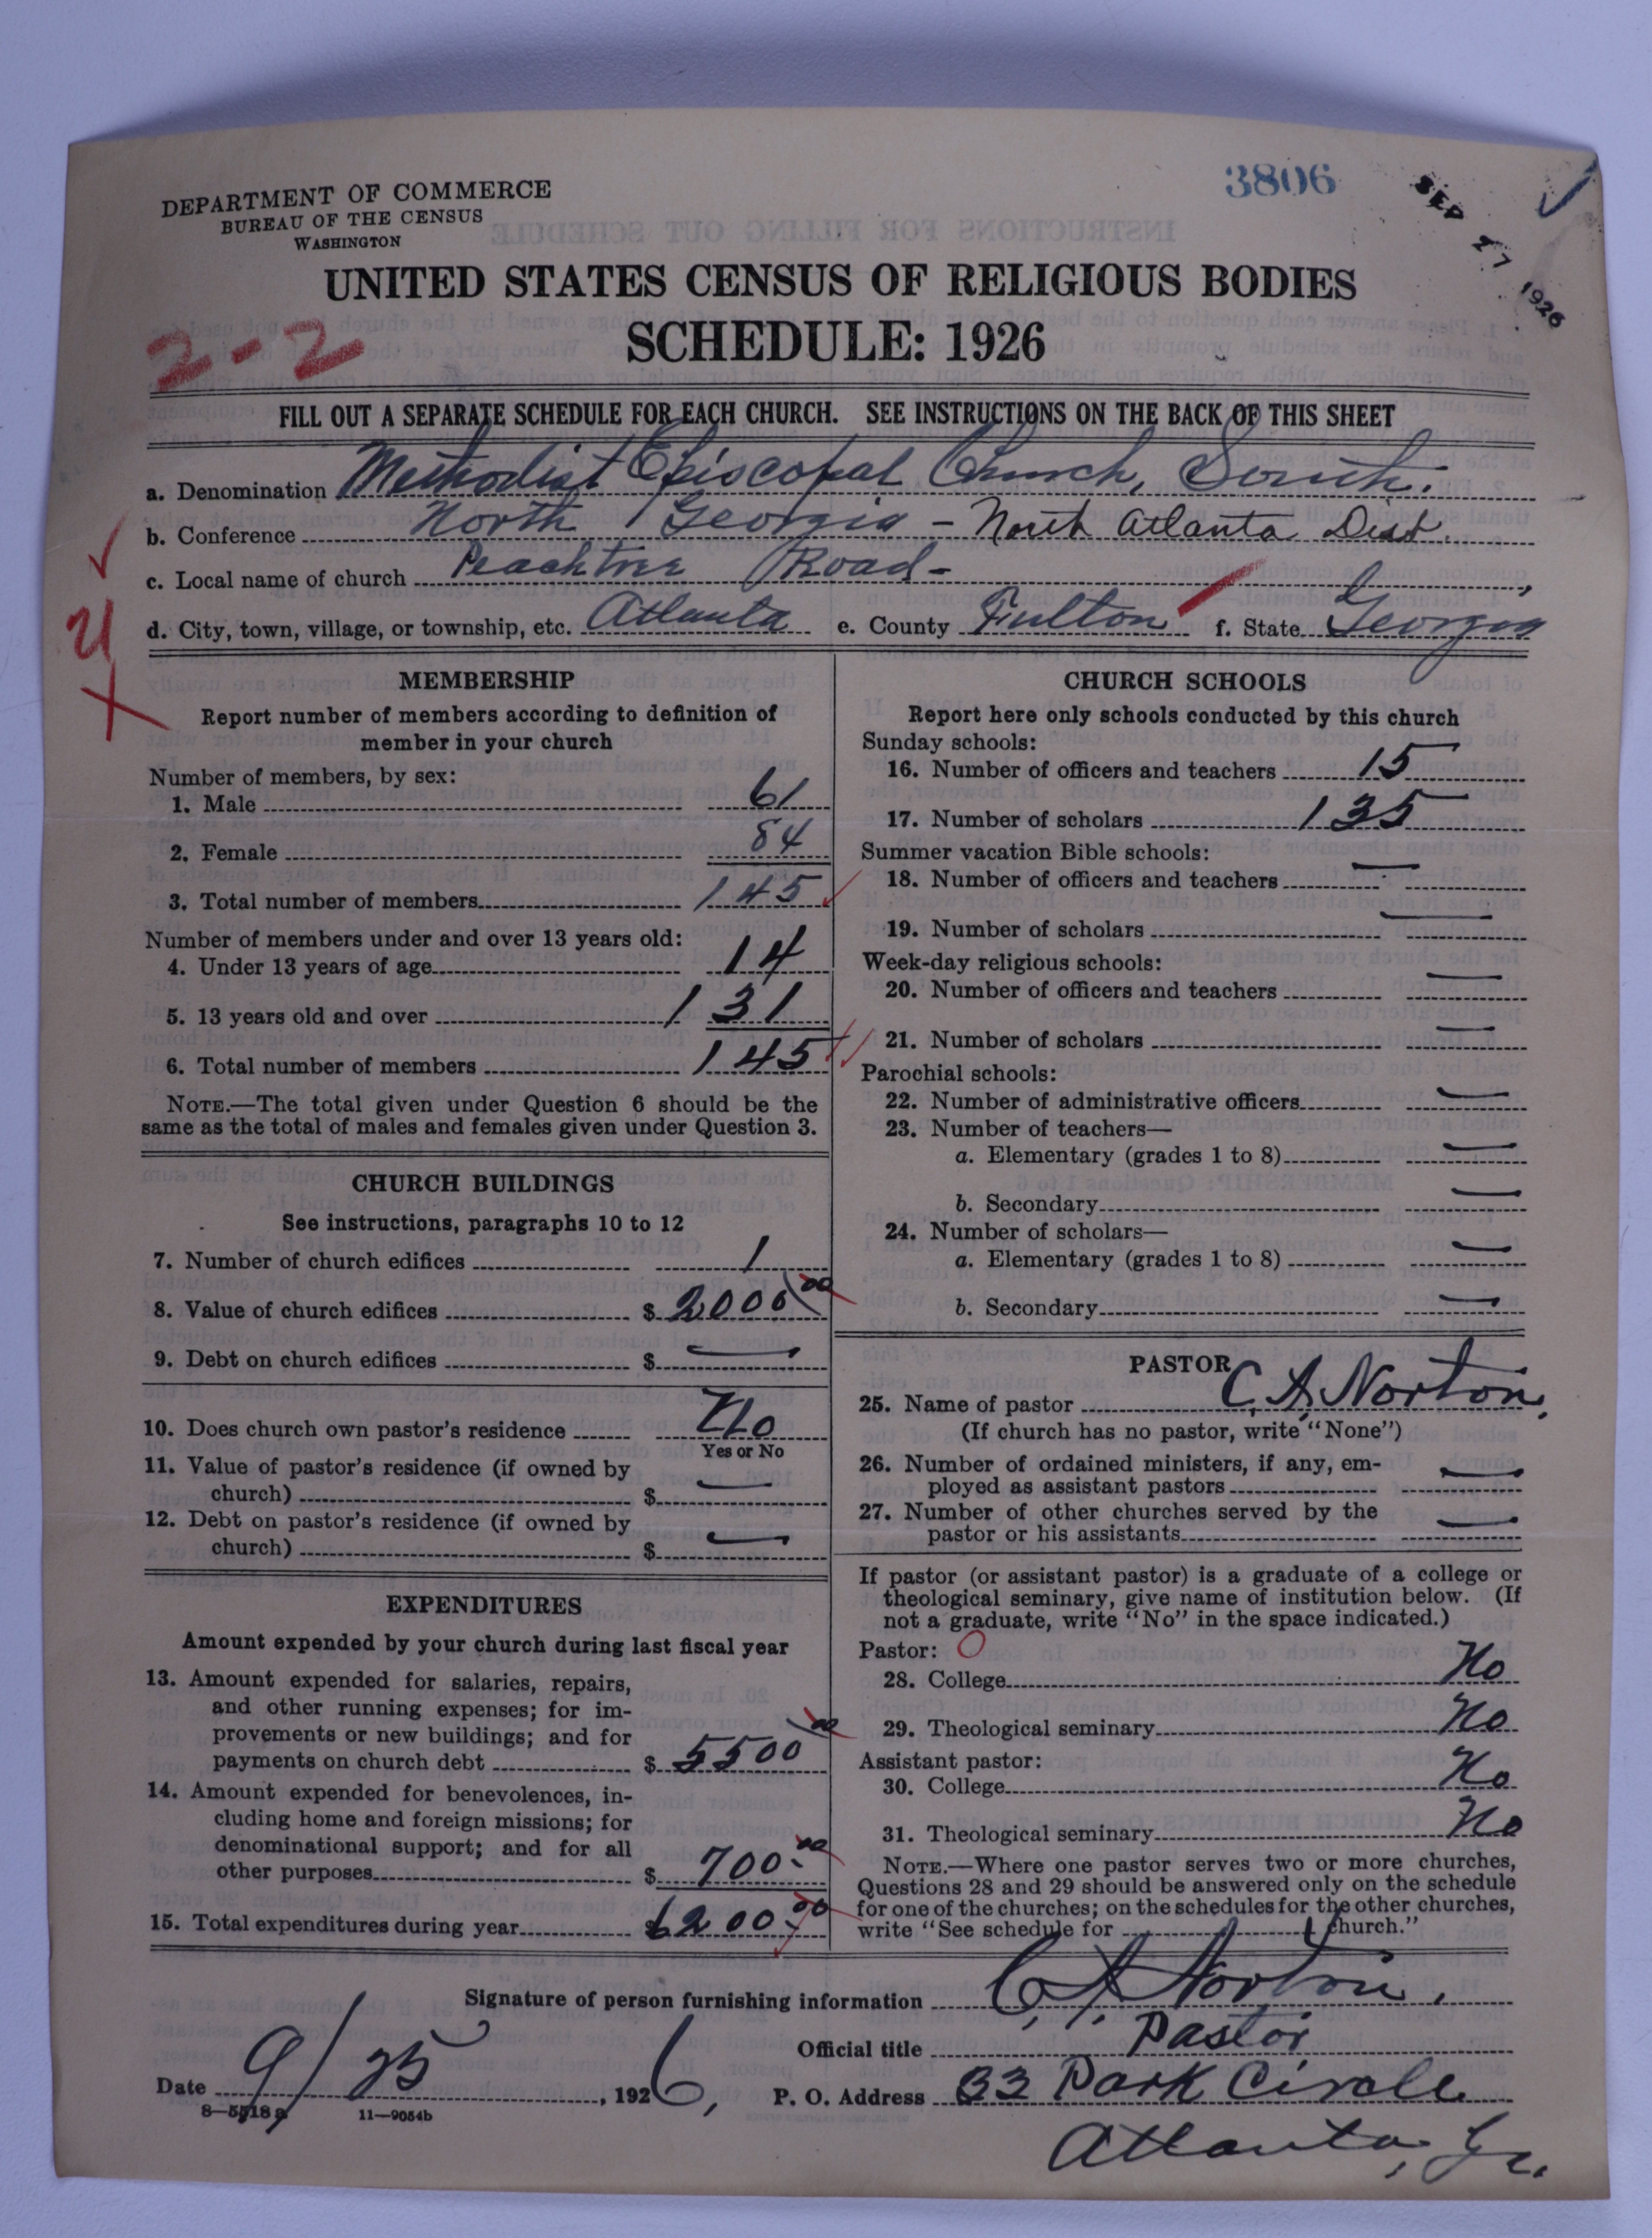 3806
SEP 27 1926
DEPARTMENT OF COMMERCE
BUREAU OF THE CENSUS
WASHINGTON
UNITED STATES CENSUS OF RELIGIOUS BODIES
SCHEDULE: 1926
2-2
FILL OUT A SEPARATE SCHEDULE FOR EACH CHURCH. SEE INSTRUCTIONS ON THE BACK OF THIS SHEET
a. Denomination Methodist Episcopal Church, South.
b. Conference North Georgia - North Atlanta Dist.
c. Local name of church Peachtree Road -
d. City, town, village, or township, etc. Atlanta e. County Fulton f. State Georgia
MEMBERSHIP
Report number of members according to definition of
member in your church
Number of members, by sex:
1. Male 61
2. Female 84
3. Total number of members 145
Number of members under and over 13 years old:
4. Under 13 years of age 14
5. 13 years old and over 131
6. Total number of members 145
NOTE.—The total given under Question 6 should be the
same as the total of males and females given under Question 3.
CHURCH BUILDINGS
See instructions, paragraphs 10 to 12
7. Number of church edifices 1
8. Value of church edifices $ 2000 00
9. Debt on church edifices $ —
10. Does church own pastor's residence No
Yes or No
11. Value of pastor's residence (if owned by
church) $ —
12. Debt on pastor's residence (if owned by
church) $ —
EXPENDITURES
Amount expended by your church during last fiscal year
13. Amount expended for salaries, repairs,
and other running expenses; for im-
provements or new buildings; and for
payments on church debt $ 5500 00
14. Amount expended for benevolences, in-
cluding home and foreign missions; for
denominational support; and for all
other purposes $ 700.00
15. Total expenditures during year $ 6200.00
CHURCH SCHOOLS
Report here only schools conducted by this church
Sunday schools:
16. Number of officers and teachers 15
17. Number of scholars 135
Summer vacation Bible schools:
18. Number of officers and teachers —
19. Number of scholars —
Week-day religious schools:
20. Number of officers and teachers —
21. Number of scholars —
Parochial schools:
22. Number of administrative officers —
23. Number of teachers—
a. Elementary (grades 1 to 8) —
b. Secondary —
24. Number of scholars—
a. Elementary (grades 1 to 8) —
b. Secondary —
PASTOR
25. Name of pastor C. A. Norton,
(If church has no pastor, write "None")
26. Number of ordained ministers, if any, em-
ployed as assistant pastors —
27. Number of other churches served by the
pastor or his assistants —
If pastor (or assistant pastor) is a graduate of a college or
theological seminary, give name of institution below. (If
not a graduate, write "No" in the space indicated.)
Pastor: O
28. College No
29. Theological seminary No
Assistant pastor:
30. College No
31. Theological seminary No
NOTE.—Where one pastor serves two or more churches,
Questions 28 and 29 should be answered only on the schedule
for one of the churches; on the schedules for the other churches,
write "See schedule for Church."
Signature of person furnishing information C. A. Norton,
Official title Pastor
Date 9/25, 1926, P. O. Address 33 Park Circle
Atlanta, Ga.
8—5518a 11—9054b